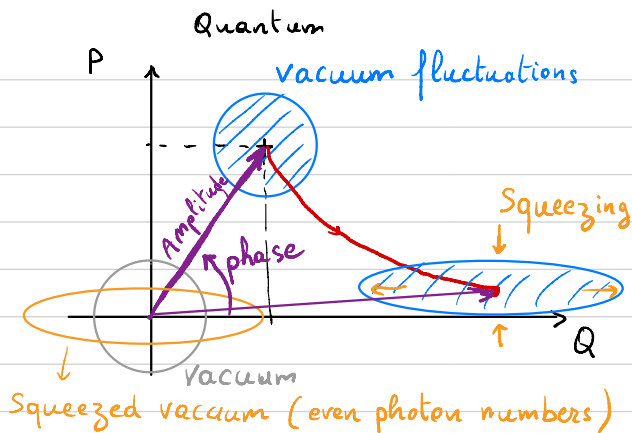 Quantum
P
vacuum fluctuations
Amplitude
phase
Squeezing
Q
vacuum
Squeezed vacuum (even photon numbers)